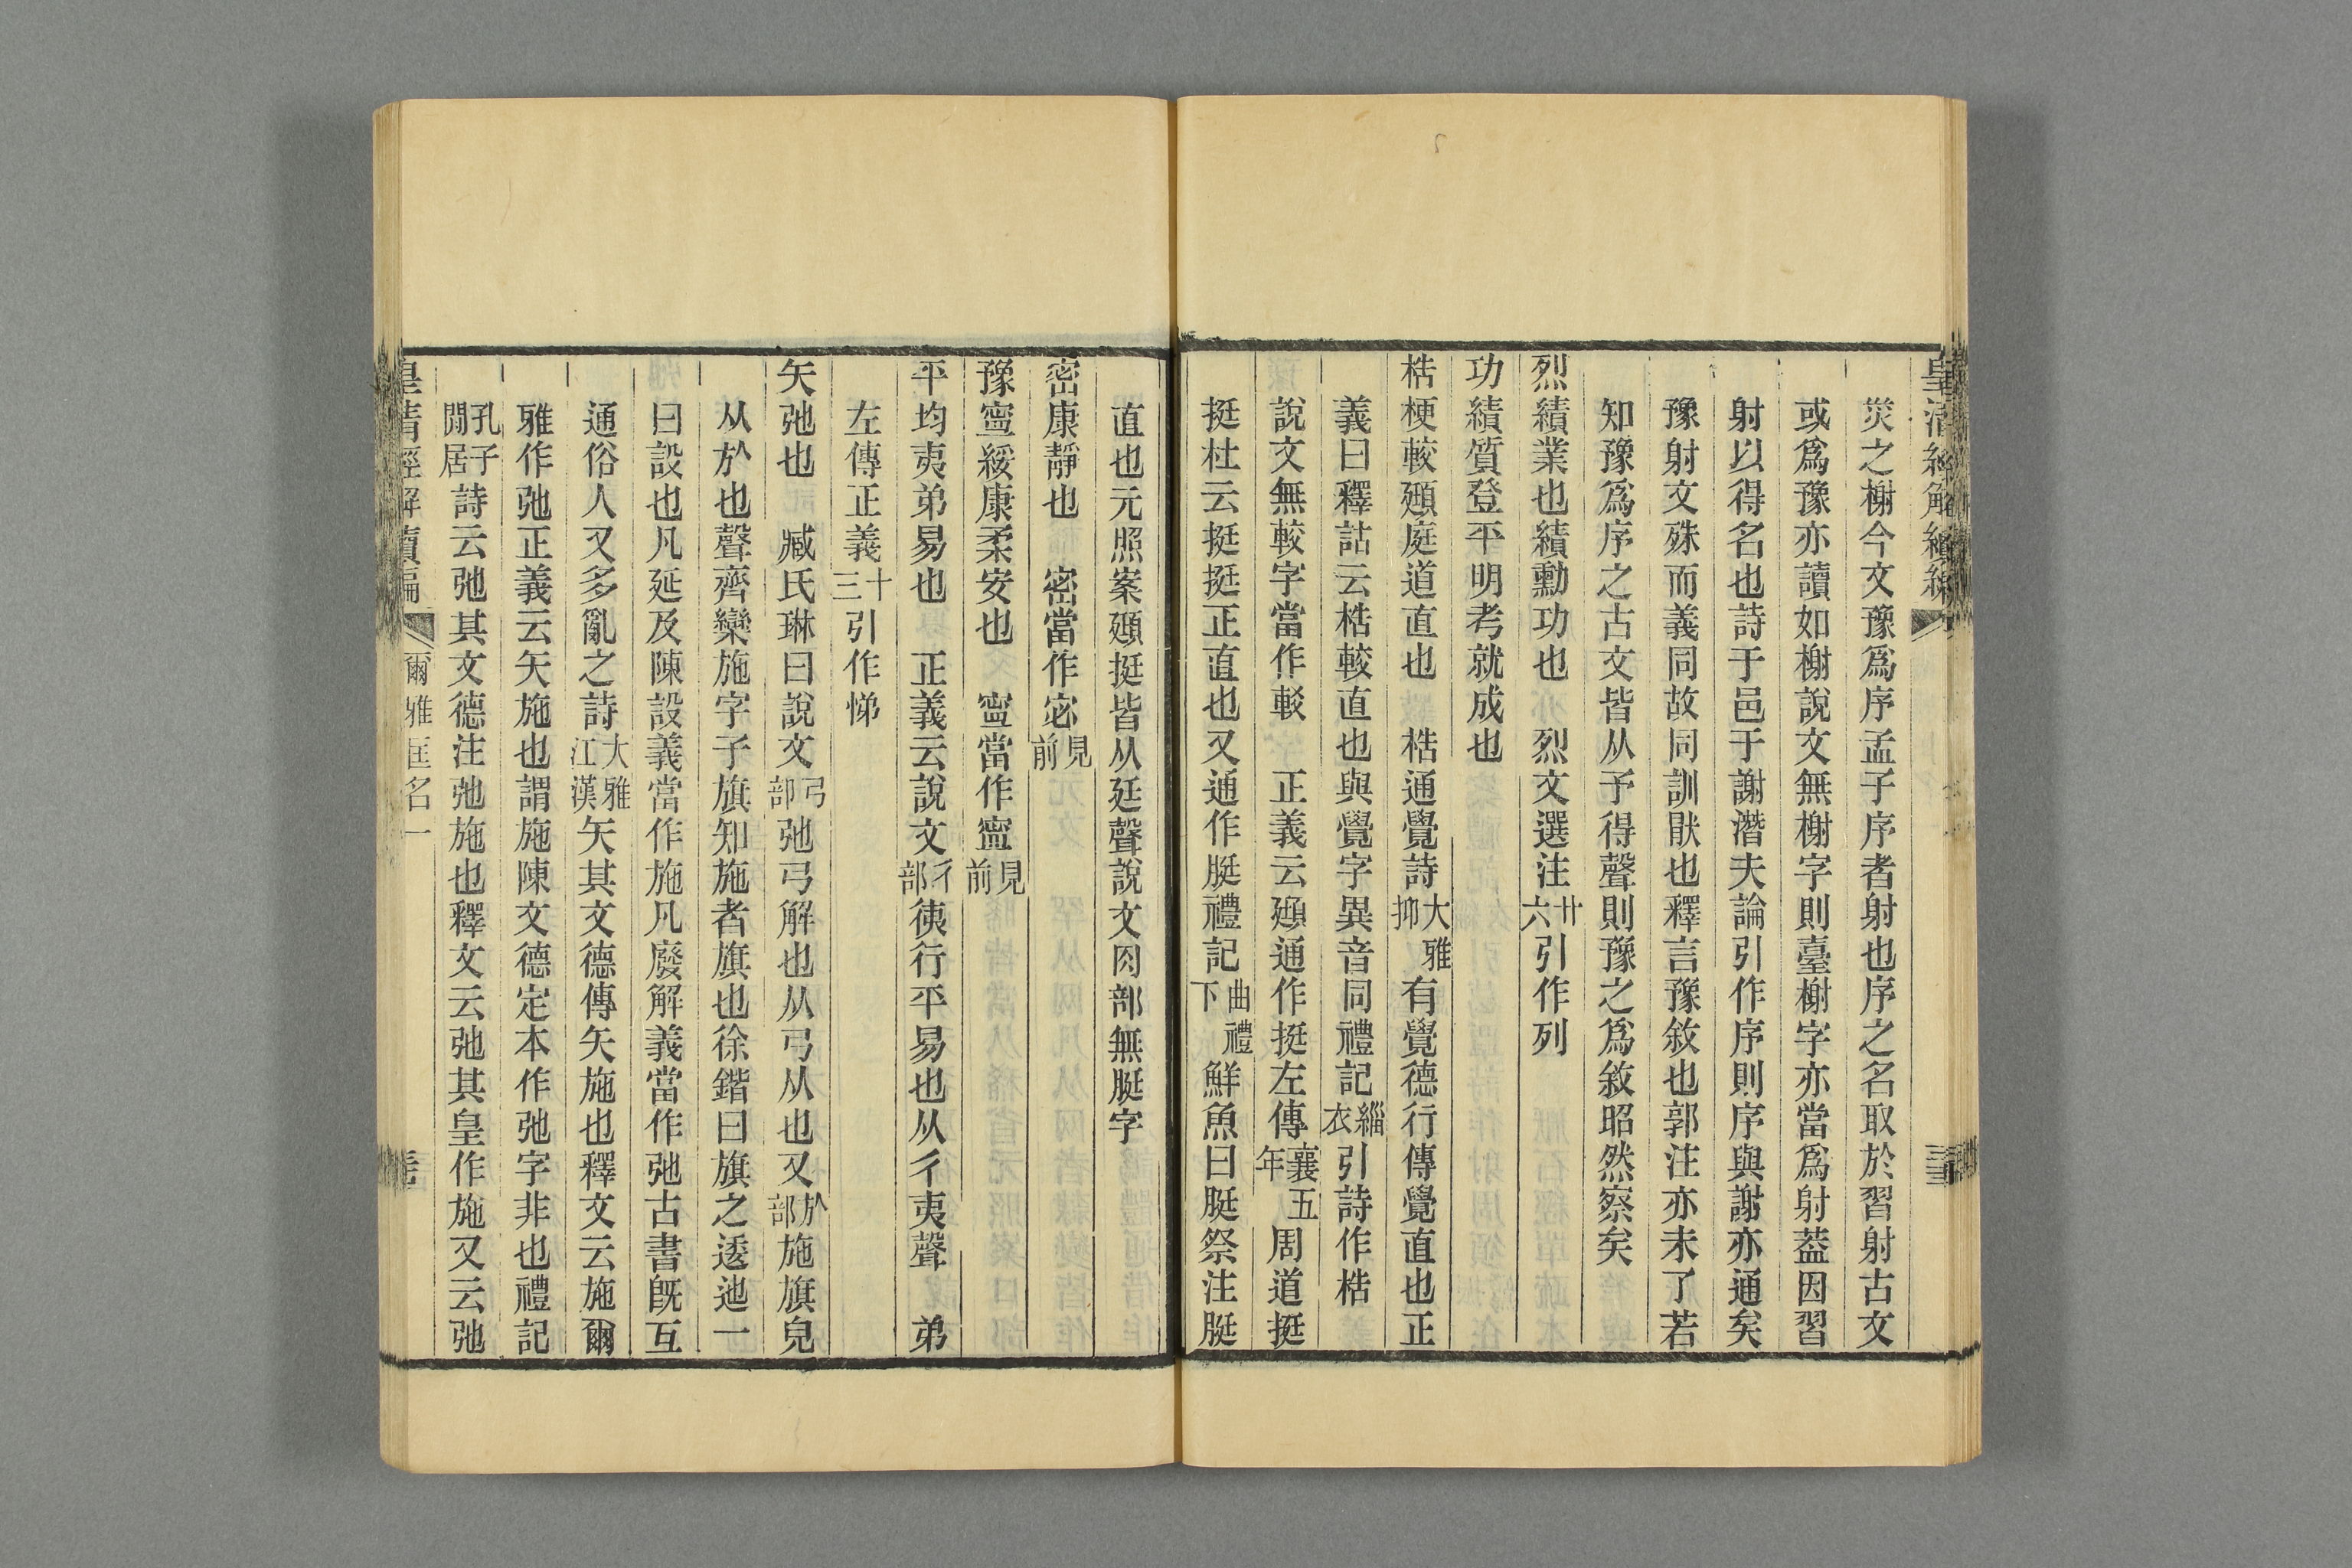 皇清經解續編
災之榭今文豫爲序孟子序者射也序之名取於習射古文
或爲豫亦讀如榭說文無榭字則臺榭字亦當爲射葢因習
射以得名也詩于邑于謝潛夫論引作序則序與謝亦通矣
豫射文殊而義同故同訓猒也釋言豫敘也郭注亦未了若
知豫爲序之古文皆从予得聲則豫之爲敘昭然察矣
烈績業也績勳功也　烈文選注廿六引作列
功績質登平明考就成也
梏梗較頲庭道直也　梏通覺詩大雅抑有覺德行傳覺直也正
義曰釋詁云梏較直也與覺字異音同禮記緇衣引詩作梏
說文無較字當作䡈　正義云頲通作挺左傳襄五年周道挺
挺杜云挺挺正直也又通作脡禮記曲禮下鮮魚曰脡祭注脡
直也元照案頲挺皆从廷聲說文肉部無脡字
密康靜也　密當作宓見前
豫寧綏康柔安也　寧當作寍見前
平均夷弟易也　正義云說文彳部徖行平易也从彳夷聲　弟
左傳正義十三引作悌
矢弛也　臧氏琳曰說文弓部弛弓解也从弓从也又㫃部施旗皃
从㫃也聲齊欒施字子旗知施者旗也徐鍇曰旗之逶迆一
曰設也凡延及陳設義當作施凡廢解義當作弛古書旣互
通俗人又多亂之詩大雅江漢矢其文德傳矢施也釋文云施爾
雅作弛正義云矢施也謂施陳文德定本作弛字非也禮記
孔子閒居詩云弛其文德注弛施也釋文云弛其皇作施又云弛
皇清經解續編
爾雅匡名一